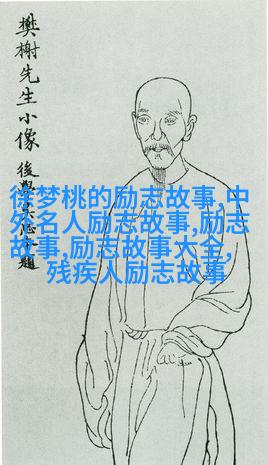 樊榭先生小像
後 題
徐梦桃的励志故事,中
外名人励志故事,励志
故事,励志故事大全,
残疾人励志故事